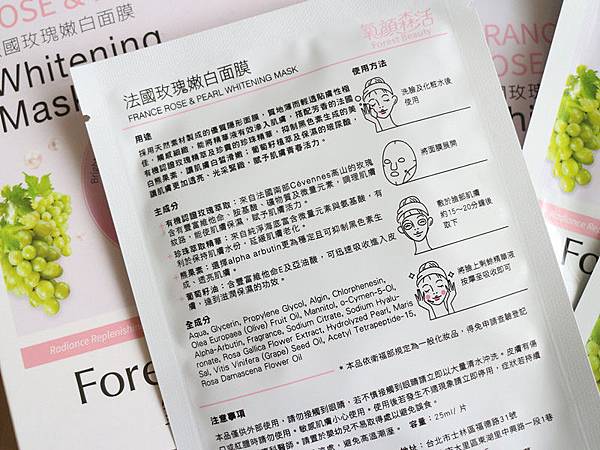 OSE &
國玫瑰嫩白面膜
Whitening
Mask
Radiance Replenishing
Fore
氧顏森活
Forest Beauty
法國玫瑰嫩白面膜
FRANCE ROSE & PEARL WHITENING MASK
用途
採用天然素材製成的優質隱形面膜，質地薄而輕透貼膚性極
佳，觸感細緻，能將精華液有效滲入肌膚，搭配芳香的法國
有機認證玫瑰萃取及珍貴的珍珠精華，抑制黑色生成的美
白熊果素，讓肌膚白皙滑嫩；葡萄籽精萃及保濕的玻尿酸，
讓肌膚更加透亮、光采緊緻，賦予肌膚青春活力。
主成分
有機認證玫瑰萃取：來自法國南部Cévennes高山的玫瑰
含有豐富維他命、胺基酸、礦物質及微量元素，調理肌膚
紋路，能使肌膚保濕，賦予肌膚活力。
珍珠萃取精華：來自純淨海底富含微量元素與氨基酸，有
利於保持肌膚水份，延緩肌膚老化。
熊果素：選擇alpha arbutin更為穩定且可抑制黑色素生
成、透亮肌膚。
葡萄籽油：含豐富維他命E及亞油酸，可迅速吸收進入皮
膚，達到滋潤保濕的功效。
全成分
Aqua, Glycerin, Propylene Glycol, Algin, Chlorphenesin,
Olea Europaea (Olive) Fruit Oil, Mannitol, o-Cymen-5-Ol,
Alpha-Arbutin, Fragrance, Sodium Citrate, Sodium Hyalu-
ronate, Rosa Gallica Flower Extract, Hydrolyzed Pearl, Maris
Sal, Vitis Vinifera (Grape) Seed Oil, Acetyl Tetrapeptide-15,
Rosa Damascena Flower Oil
*本品依衛福部規定為一般化妝品，得免申請查驗登記
使用方法
洗臉及化妝水後
使用
將面膜展開
敷於臉部肌膚
約15～20分鐘後
取下
將臉上剩餘精華液
按摩至吸收即可
注意事項
本品僅供外部使用，請勿接觸到眼睛，若不慎接觸到眼睛請立即以大量清水沖洗。皮膚有傷
口或紅腫時請勿使用。敏感肌膚小心使用。使用後若發生不適現象請立即停用，症狀若持續
請置於嬰幼兒不易取得處以避免誤食。
容量：25ml/片
避免高溫潮溼。
台北市士林區福德路31號
大里區東湖里中興路一段1巷
FRANC
ROSE
Radiance Replenishing